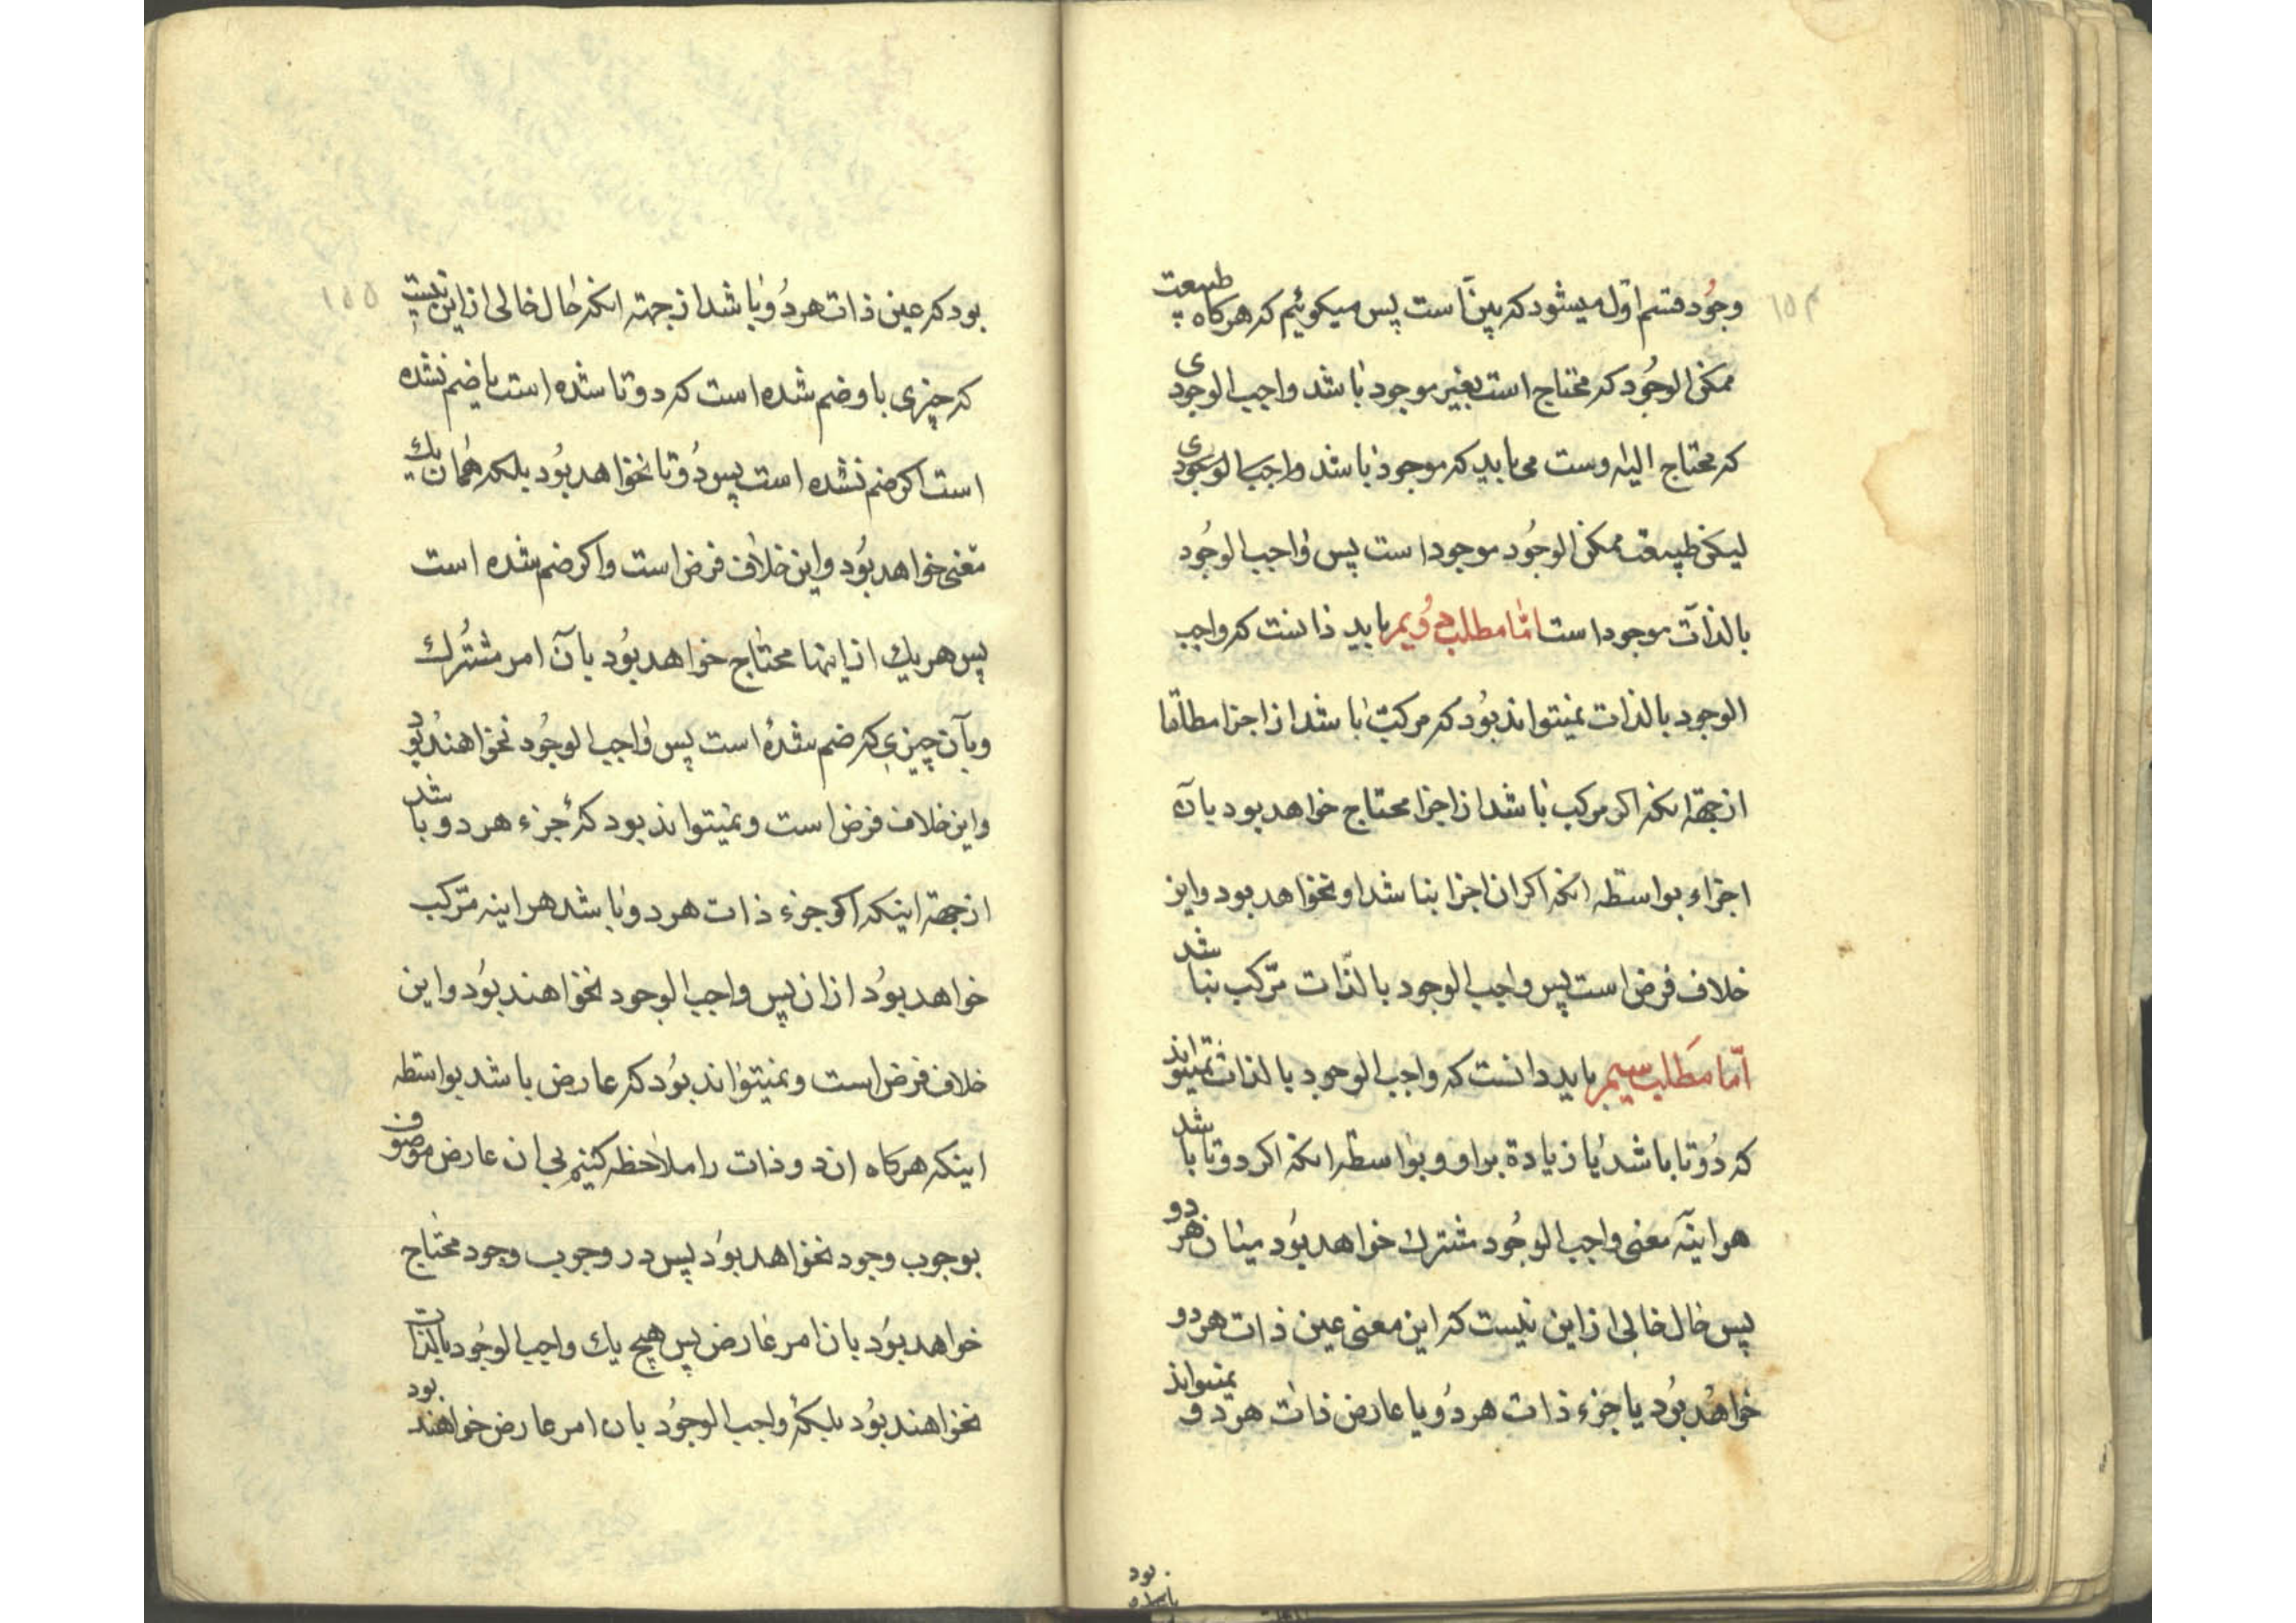 وجُود قسم اوّل میشود که بیّن است پس میکوئیم که هرکاه طبیعت
ممکن الوجُود که محتاج است بغیر موجود باشد واجب الوجودی
که محتاج الیه اوست می باید که موجود باشد واجب الوجودی
لیکن طبیعت ممکن الوجُود موجود است پس واجب الوجُود
بالذات موجود است امّا مطلب دُویم باید دانست که واجب
الوجود بالذات نمیتواند بُود که مرکب باشد از اجزا مطلقا
از جهة انکه اکر مرکب باشد از اجزا محتاج خواهد بود بآن
اجزاء بواسطه انکه اکر ان اجزا نباشد او نخواهد بود و این
خلاف فرض است پس واجب الوجود بالذّات مرّکب نباشد
امّا مَطلب سیم باید دانست که واجب الوجود بالذات نمیتواند
که دُوتا باشد یا زیادة براو و بواسطه انکه اکر دوتا باشد
هراینه معنی واجب الوجُود مشترك خواهد بُود میان هر دو
پس حال خالی از این نیست که این معنی عین ذات هر دو
خواهد بُود یا جزء ذات هر دُو یا عارض ذات هر دو نمیتواند
۱۵۴
بود که عین ذات هر دُو باشد از جهته انکه حال خالی از این نیست
که چیزی باو ضم شده است که دوتا شده است یا ضم نشده
است اکر ضم نشده است پس دُوتا نخواهد بوُد بلکه همان یك
معنی خواهد بوُد و این خلاف فرض است و اکر ضم شده است
پس هر یك از اینها محتاج خواهد بوُد بآن امر مشتُرك
و بآن چیزی که ضم شدهٔ است پس واجب الوجُود نخواهند بُود
و این خلاف فرض است و نمیتواند بود که جزء هر دو باشد
از جهة اینکه اکر جزء ذات هر دو باشد هراینه مّرکب
خواهد بوُد از ان پس واجب الوجود نخواهند بوُد و این
خلاف فرض است و نمیتواند بوُد که عارض باشد بواسطه
اینکه هرکاه ان دو ذات را ملاحظه کنیم بی ان عارض موصوف
بوجوب وجود نخواهد بوُد پس در وجوب وجود محتاج
خواهد بوُد بان امر عارض پس هیچ یك واجب الوجُود بالذات
نخواهند بوُد بلکهٔ واجب الوجُود بان امر عارض خواهند بود
۱۵۵